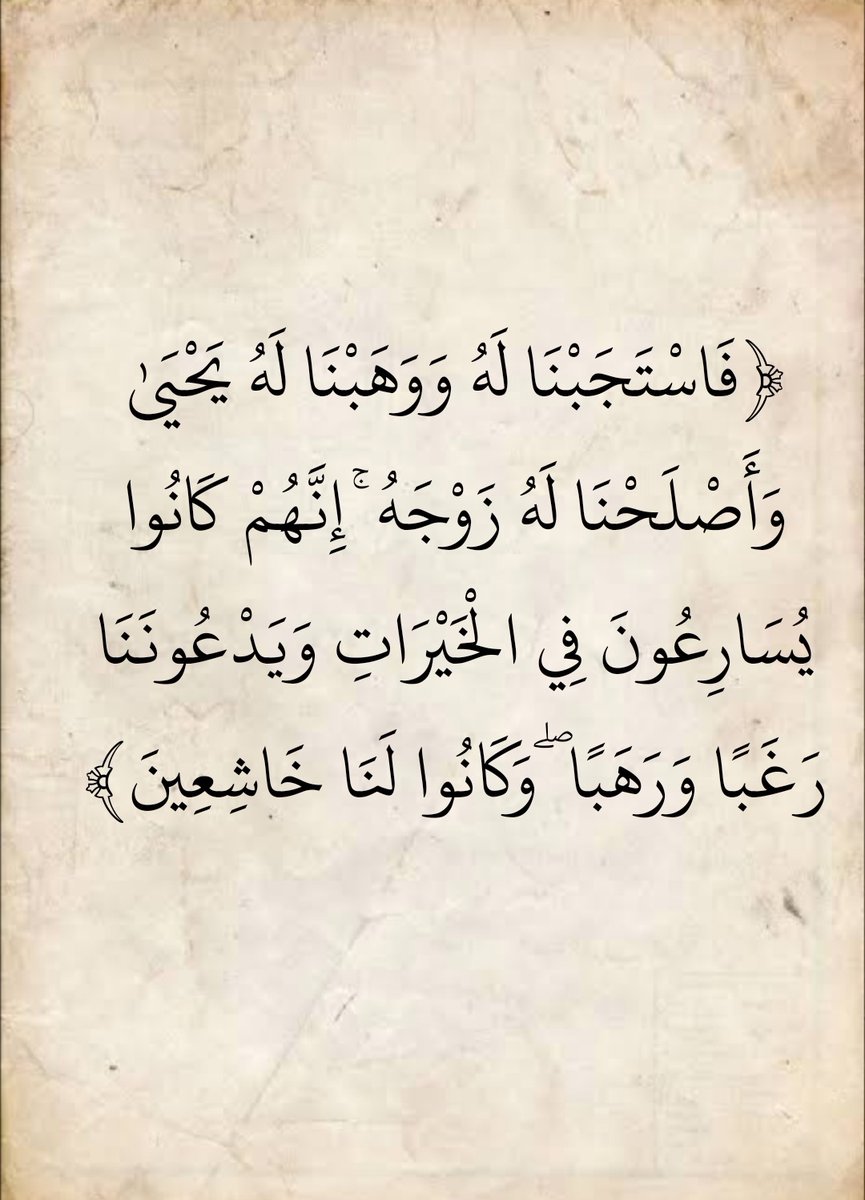 ﴿فَاسْتَجَبْنَا لَهُ وَوَهَبْنَا لَهُ يَحْيَىٰ
وَأَصْلَحْنَا لَهُ زَوْجَهُ ۚ إِنَّهُمْ كَانُوا
يُسَارِعُونَ فِي الْخَيْرَاتِ وَيَدْعُونَنَا
رَغَبًا وَرَهَبًا ۖ وَكَانُوا لَنَا خَاشِعِينَ﴾